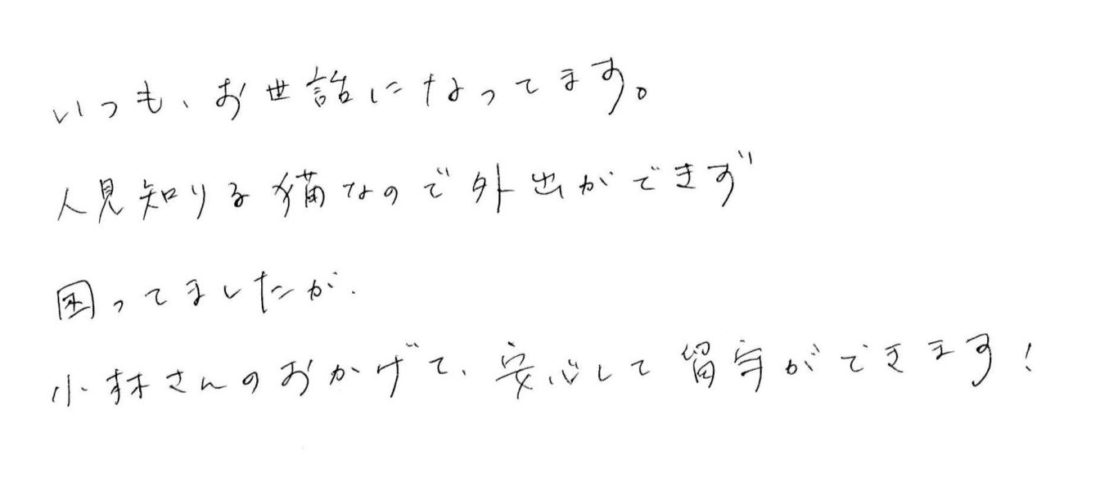 いつも、お世話になってます。
人見知りる猫なので外出ができず
困ってましたが、
小林さんのおかげで、安心して留守ができます！